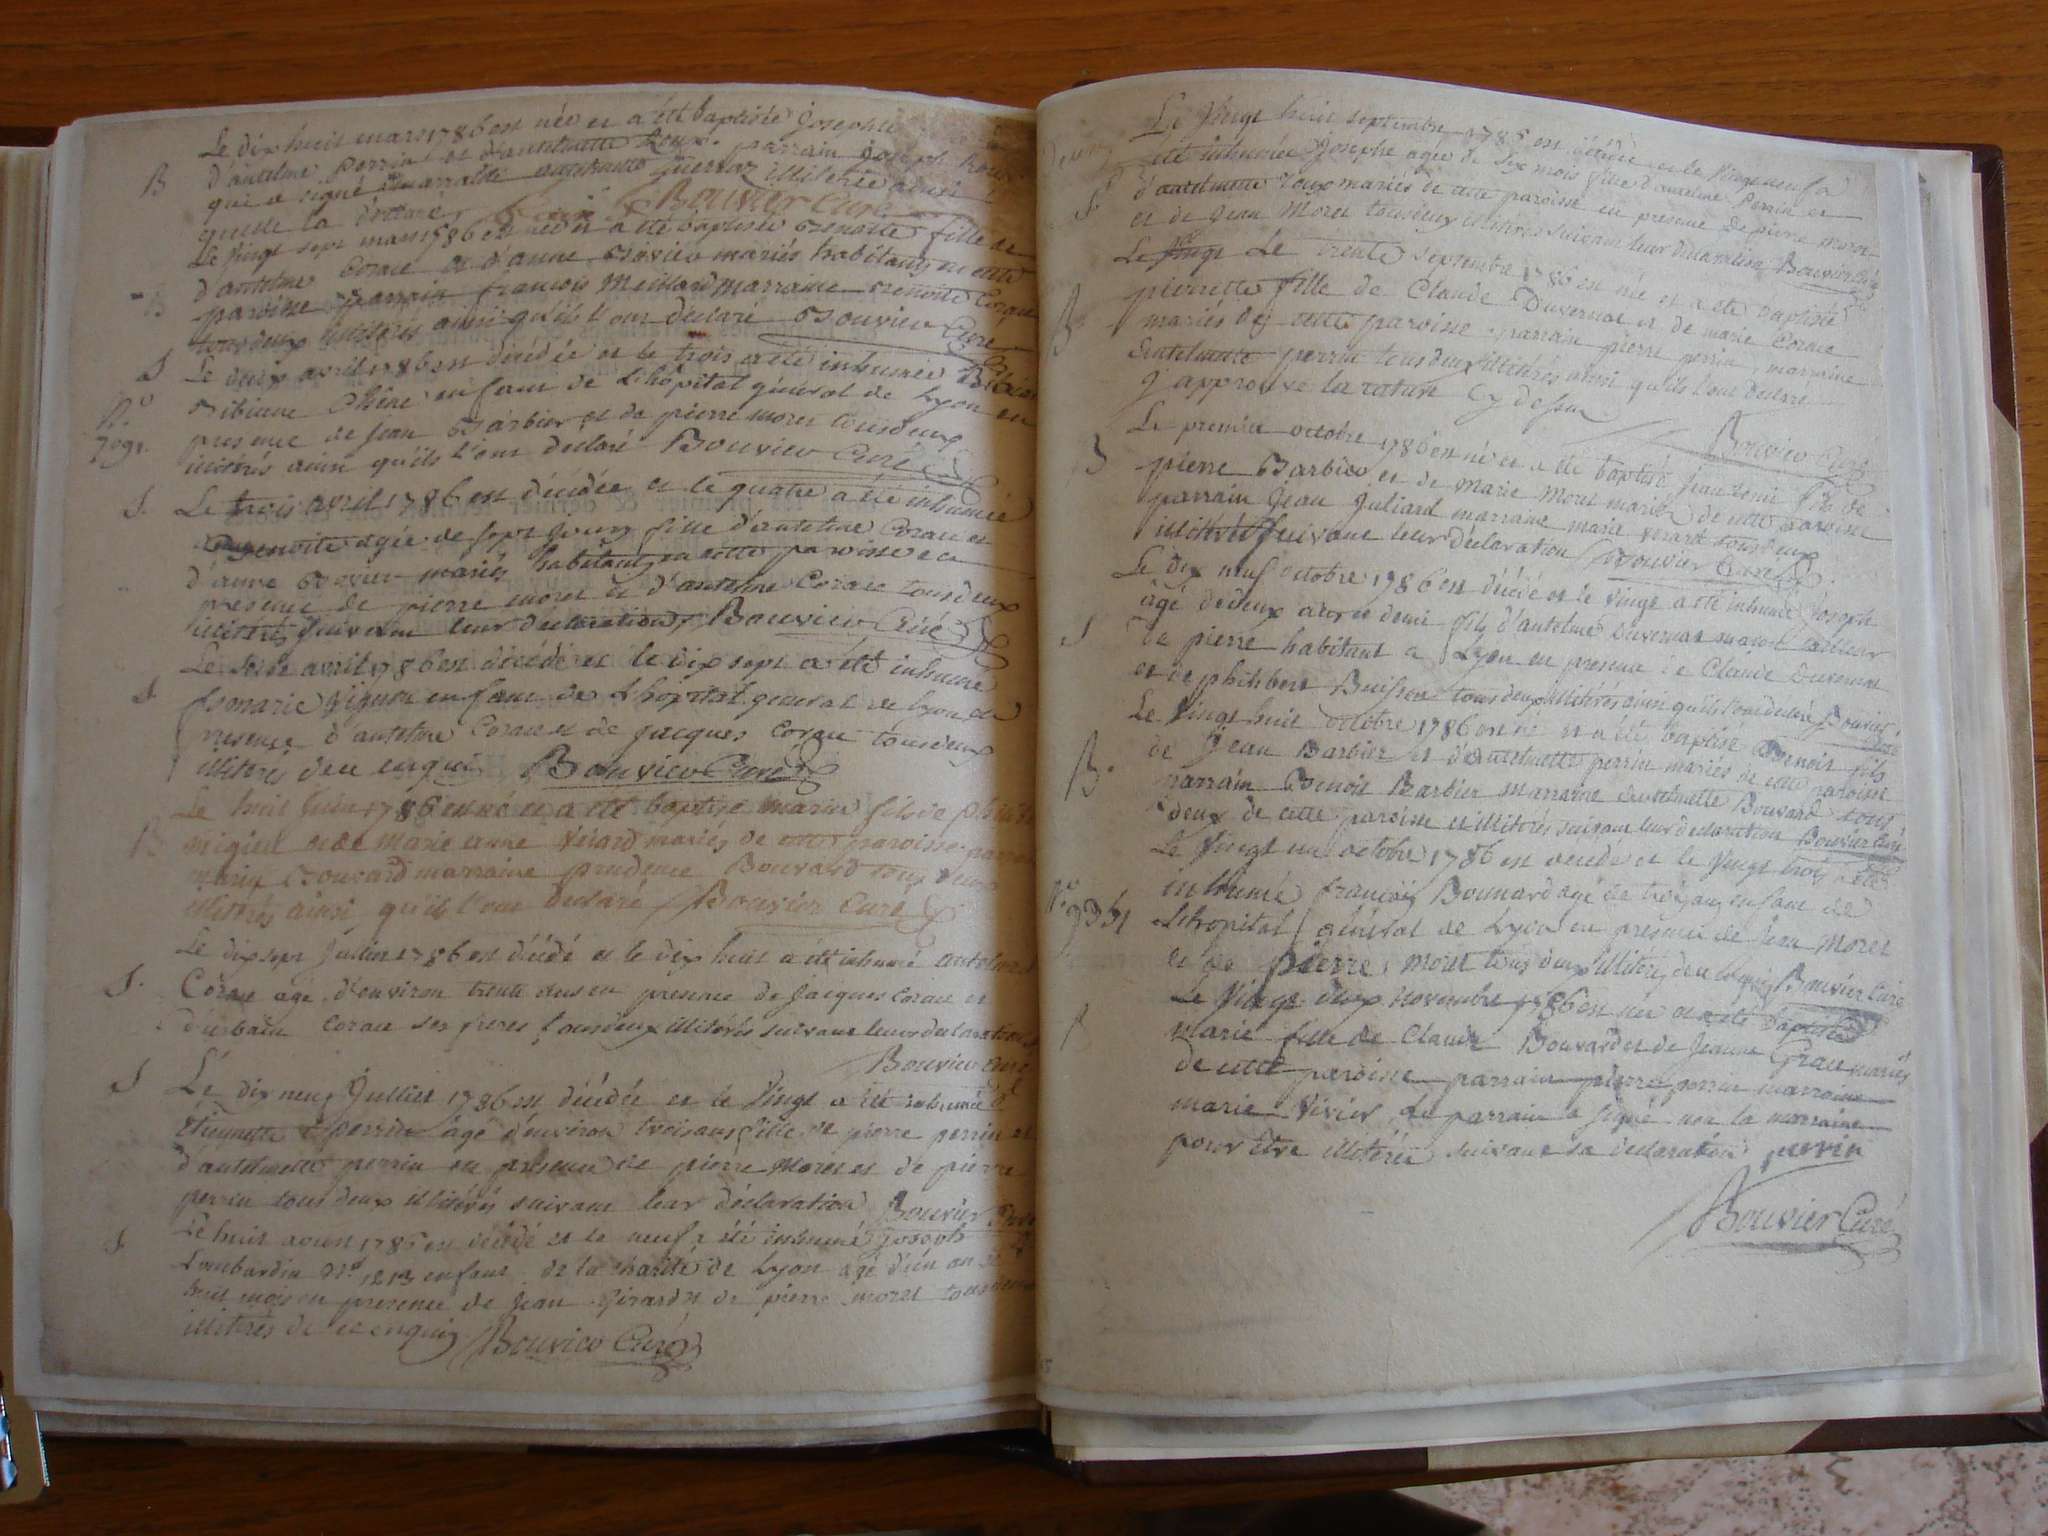 Le dix huit mars 1786 est née et a été baptisée Josephte
B
d'antelme perrin et d'antelmette Roux. parrain Joseph Roux
qui a signé marraine antelmette illiterée ainsi
quelle la déclaré Bouvier Curé
Le vingt sept mars 1786 est née et a été baptisée Benoite fille de
d'antelme Corau et d'anne Bouvier mariés habitans en cette
B
paroisse parrain françois Meillard marraine Benoite Corau
tous deux illiterés ainsi qu'ils l'ont declaré Bouvier Curé
S
Le deux avril 1786 est décédée et le trois a été inhumée
N.o
7091.
Bibiane Chêne enfant de Lhôpital général de Lyon en
presence de jean Barbier et de pierre moret tous deux
illiterés ainsi qu'ils l'ont declaré Bouvier Curé
S.
Le trois avril 1786 est décédée et le quatre a été inhumée
Benoite agée de sept jours fille d'antelme Corau et
d'anne Bouvier mariés habitans en cette paroisse en
presence de pierre moret et d'antelme Corau tous deux
illiterés suivant leur déclaration Bouvier Curé
Le seize avril 1786 est décédé et le dix sept a été inhumé
S
marie vignon enfant de Lhôpital general de Lyon en
presence d'antelme Corau et de jacques Corau tous deux
illiterés de ce enquis Bouvier Curé
Le huit juin 1786 est né et a été baptisé marin fils de
B
migieu et de Marie anne Verard mariés de cette paroisse parrain
marin Bouvard marraine prudence Bouvard tous deux
illiterés ainsi qu'ils l'ont declaré Bouvier Curé
Le dix sept Juillet 1786 est décédé et le dix huit a été inhumé antelme
S.
Corau agé d'environ trente ans en presence de Jacques Corau et
d'urbain Corau ses freres tous deux illiterés suivant leur declaration
Bouvier Curé
S
Le dix neuf Juillet 1786 est décédée et le vingt a été inhumée
Etiennette perrin agé d'environ trois ans fille de pierre perrin et
d'antelmette perrin en presence de pierre Moret et de pierre
perrin tous deux illiterés suivant leur déclaration Bouvier Curé
S
Le huit aoust 1786 est décédé et le neuf a été inhumé joseph
Lombardin N.o 1213 enfant de la charité de Lyon agé d'un an et
huit mois en presence de Jean Girard et de pierre moret tous deux
illiterés de ce enquis Bouvier Curé
Le vingt huit septembre 1786 est décédée et le vingt neuf a
S
été inhumée Josephte agée de six mois fille d'antelme perrin et
d'antelmette Roux mariés de cette paroisse en presence de pierre moret
et de Jean Moret tous deux illiterés suivant leur déclaration Bouvier Curé
Le vingt Le trente septembre 1786 est née et a été baptisée
B
pierrette fille de Claude Duvernai et de marie Corau
mariés de cette paroisse parrain pierre perrin, marraine
Antelmette perrin tous deux illiterés ainsi qu'ils l'ont declaré
J'approuve la rature Cy dessus
Bouvier Curé
Le premier octobre 1786 est né et a été baptisé Jean Denis fils de
B
pierre Barbier et de Marie Moret mariés de cette paroisse
parrain Jean Juliard marraine marie Verard tous deux
illiterés suivant leur déclaration Bouvier Curé
Le dix neuf octobre 1786 est décédé et le vingt a été inhumé Joseph
agé de deux ans et demi fils d'antelme Duvernai tailleur
S
de pierre habitant a Lyon en presence de Claude Duvernai
et de philibert Buisson tous deux illiterés ainsi qu'ils l'ont declaré Bouvier Curé
Le vingt huit octobre 1786 est né et a été baptisé Benoit fils
B.
de Jean Barbier et d'antelmette perrin mariés de cette paroisse
parrain Benoit Barbier marraine antelmette Bouvard tous
deux de cette paroisse et illiterés suivant leur declaration Bouvier Curé
Le vingt un octobre 1786 est décédé et le vingt trois a été
N.o
9351
inhumé françois Bonnard agé de trois ans enfant de
Lhopital général de Lyon en presence de Jean Moret
et de pierre Moret tous deux illiterés de ce enquis Bouvier Curé
Le vingt deux novembre 1786 est née et a été baptisée
B
marie fille de Claude Bouvard et de Jeanne Grau mariés
de cette paroisse parrain pierre perrin marraine
marie Vivier Le parrain a signé non la marraine
pour être illiterée suivant sa declaration perrin
Bouvier Curé